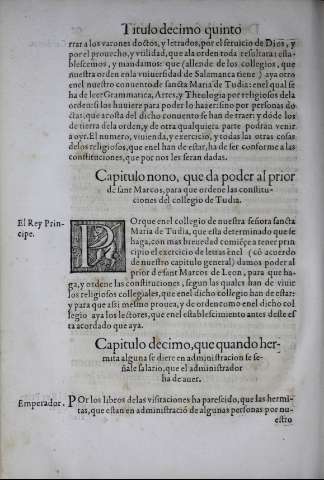 Titulo decimo quinto
rrar a los varones doctos, y letrados, por el seruicio de Dios, y
por el prouecho, y vtilidad, que ala orden toda resultara: esta-
blescemos, y mandamos: que (allende de los collegios, que
nuestra orden en la vniuersidad de Salamanca tiene) aya otro
enel nuestro conuento de sancta Maria de Tudia: enel qual se
ha de leer Grammatica, Artes, y Theologia por religiosos dela
orden: si los huuiere para poder lo hazer: sino por personas do-
ctas, que acosta del dicho conuento se han de traer: y dode los
de tierra dela orden, y de otra qualquiera parte podran venir
a oyr. El numero, viuienda, y exercicio, y todas las otras cosas
de los religiosos, que enel han de estar, ha de ser conforme a las
constituciones, que por nos les seran dadas.
Capitulo nono, que da poder al prior
de sant Marcos, para que ordene las constitu-
ciones del collegio de Tudia.
El Rey Prin-
cipe.
POrque enel collegio de nuestra señora sancta
Maria de Tudia, que esta determinado que se
haga, con mas breuedad comiẽçe a tener prin-
cipio el exercicio de letras enel (cõ acuerdo
de nuestro capitulo general) damos poder al
prior de sant Marcos de Leon, para que ha-
ga, y ordene las constituciones, segun las quales han de viuir
los religiosos collegiales, que enel dicho collegio han de estar:
y para que assi mesmo prouea, y de orden como enel dicho col
legio aya los lectores, que enel establescimiento antes deste es
ta acordado que aya.
Capitulo decimo, que quando her-
mita alguna se diere en administracion se se-
ñale salario, que el administrador
ha de auer.
Emperador.
POr los libros de las visitaciones ha parescido, que las hermi-
tas, que estan en administraciõ de algunas personas por nu-
estro